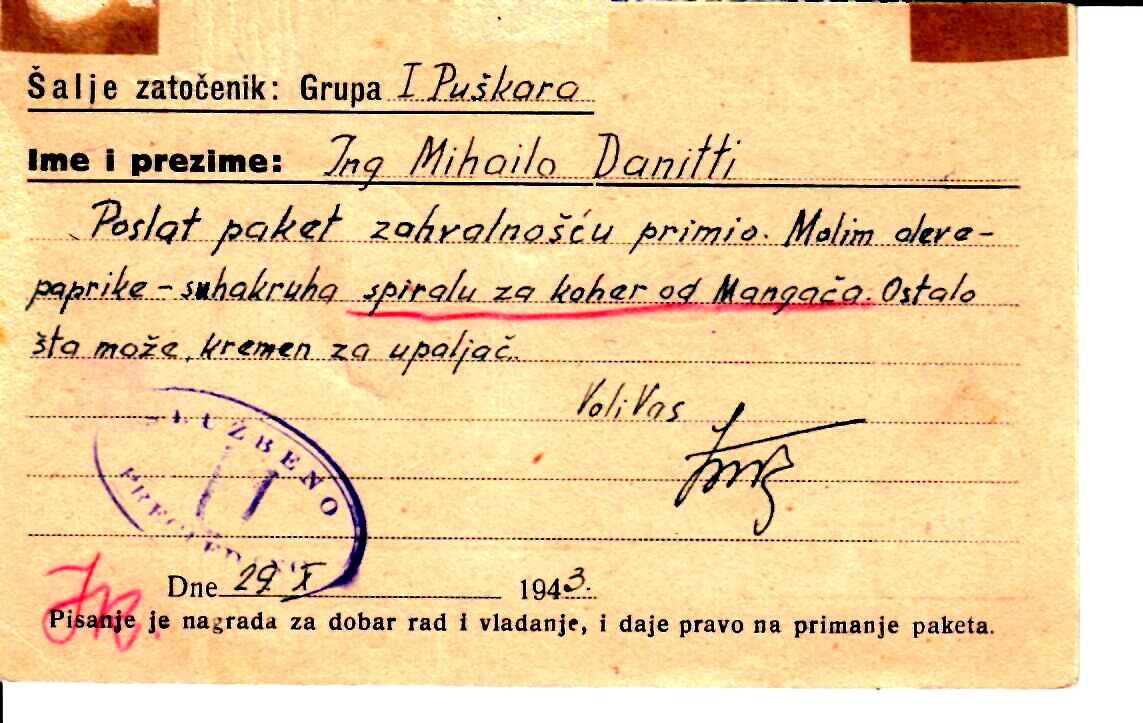 Šalje zatočenik: Grupa I Puškara
Ime i prezime: Ing Mihailo Danitti
Poslat paket zahvalnošću primio. Molim aleve-
paprike - suhakruha spiralu za koher od Mangača. Ostalo
šta može, kremen za upaljač.
Voli Vas
SLUŽBENO
U
PREGLEDANO
Dne 29. X 1943.
Pisanje je nagrada za dobar rad i vladanje, i daje pravo na primanje paketa.